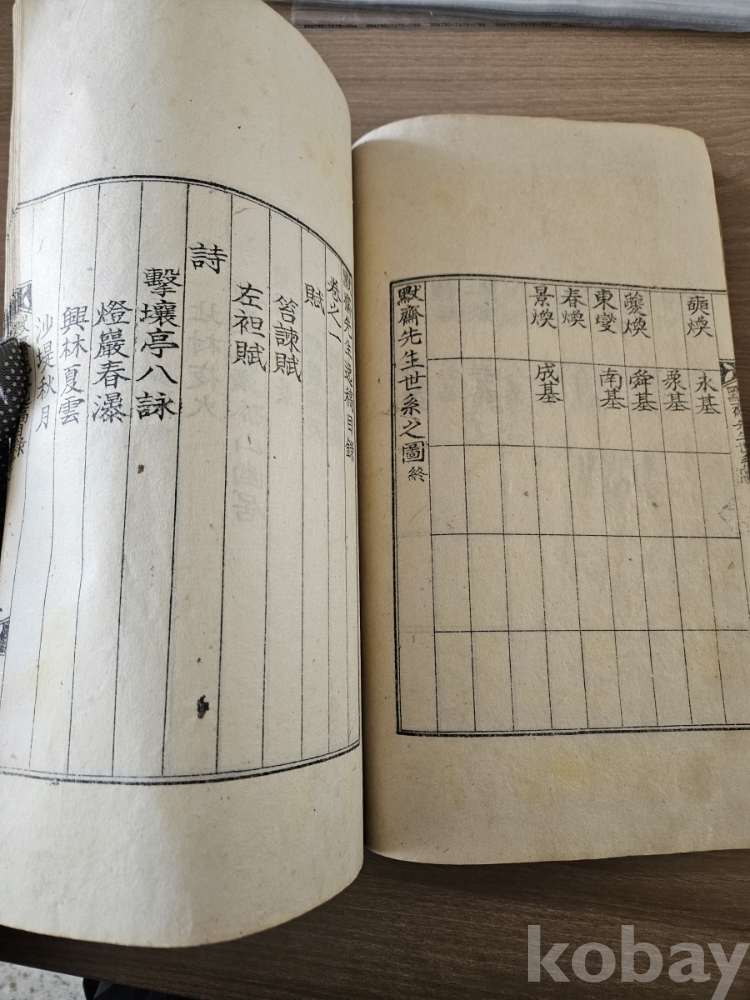 奭煥
夔煥
東燮
春煥
景煥
永基
衆基
舜基
南基
成基
默齋先生世系之圖終
默齋先生逸稿目錄
卷之一
賦
笞諫賦
左袒賦
詩
擊壤亭八詠
燈巖春瀑
興林夏雲
沙堤秋月
kobay